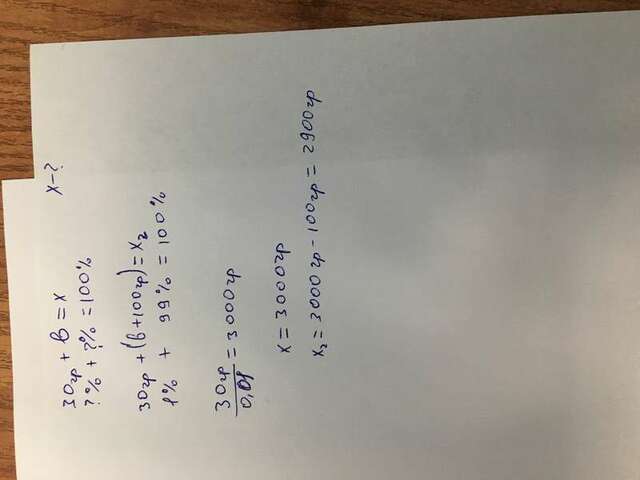 30гр + в = x
x - ?
?% + ?% = 100%
30гр + (в + 100гр) = x₂
1% + 99% = 100%
30гр
0,01
= 3000гр
x = 3000гр
x₂ = 3000гр - 100гр = 2900гр